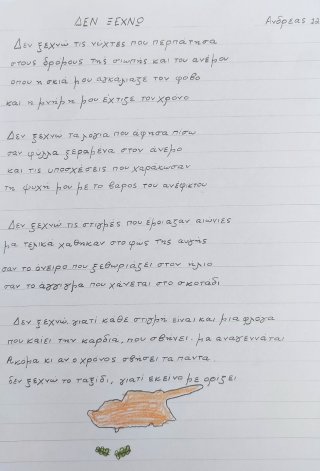 ΔΕΝ ΞΕΧΝΩ
Ανδρέας 12
Δεν ξεχνω τις νυχτες που περπατησα
στους δρομους της σιωπης και του ανεμου
οπου η σκια μου αγκαλιαζε τον φοβο
και η μνημη μου έχτιζε τον χρονο
Δεν ξεχνω τα λογια που αφησα πισω
σαν φυλλα ξεραμενα στον άνεμο
και τις υποσχέσεις που χαρακωσαν
τη ψυχη μου με το βαρος του ανεφικτου
Δεν ξεχνώ τις στιγμες που εμοιαζαν αιωνιες
μα τελικα χαθηκαν στο φως της αυγής
σαν το όνειρο που ξεθωριάζει στον ήλιο
σαν το άγγιγμα που χάνεται στο σκοταδι
Δεν ξεχνώ, γιατί καθε στιγμη ειναι και μια φλογα
που καίει την καρδια, που σβήνει μα αναγενναται
Ακομα κι αν ο χρονος σβησει τα παντα.
δεν ξεχνω το ταξιδι, γιατί εκείνο με οριζει